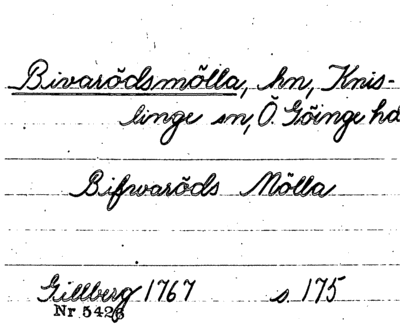 Bivarödsmölla, hn, Knis-
linge sn, Ö. Göinge hd
Bifwaröds Mölla
Gillberg 1767 s. 175
Nr 5426